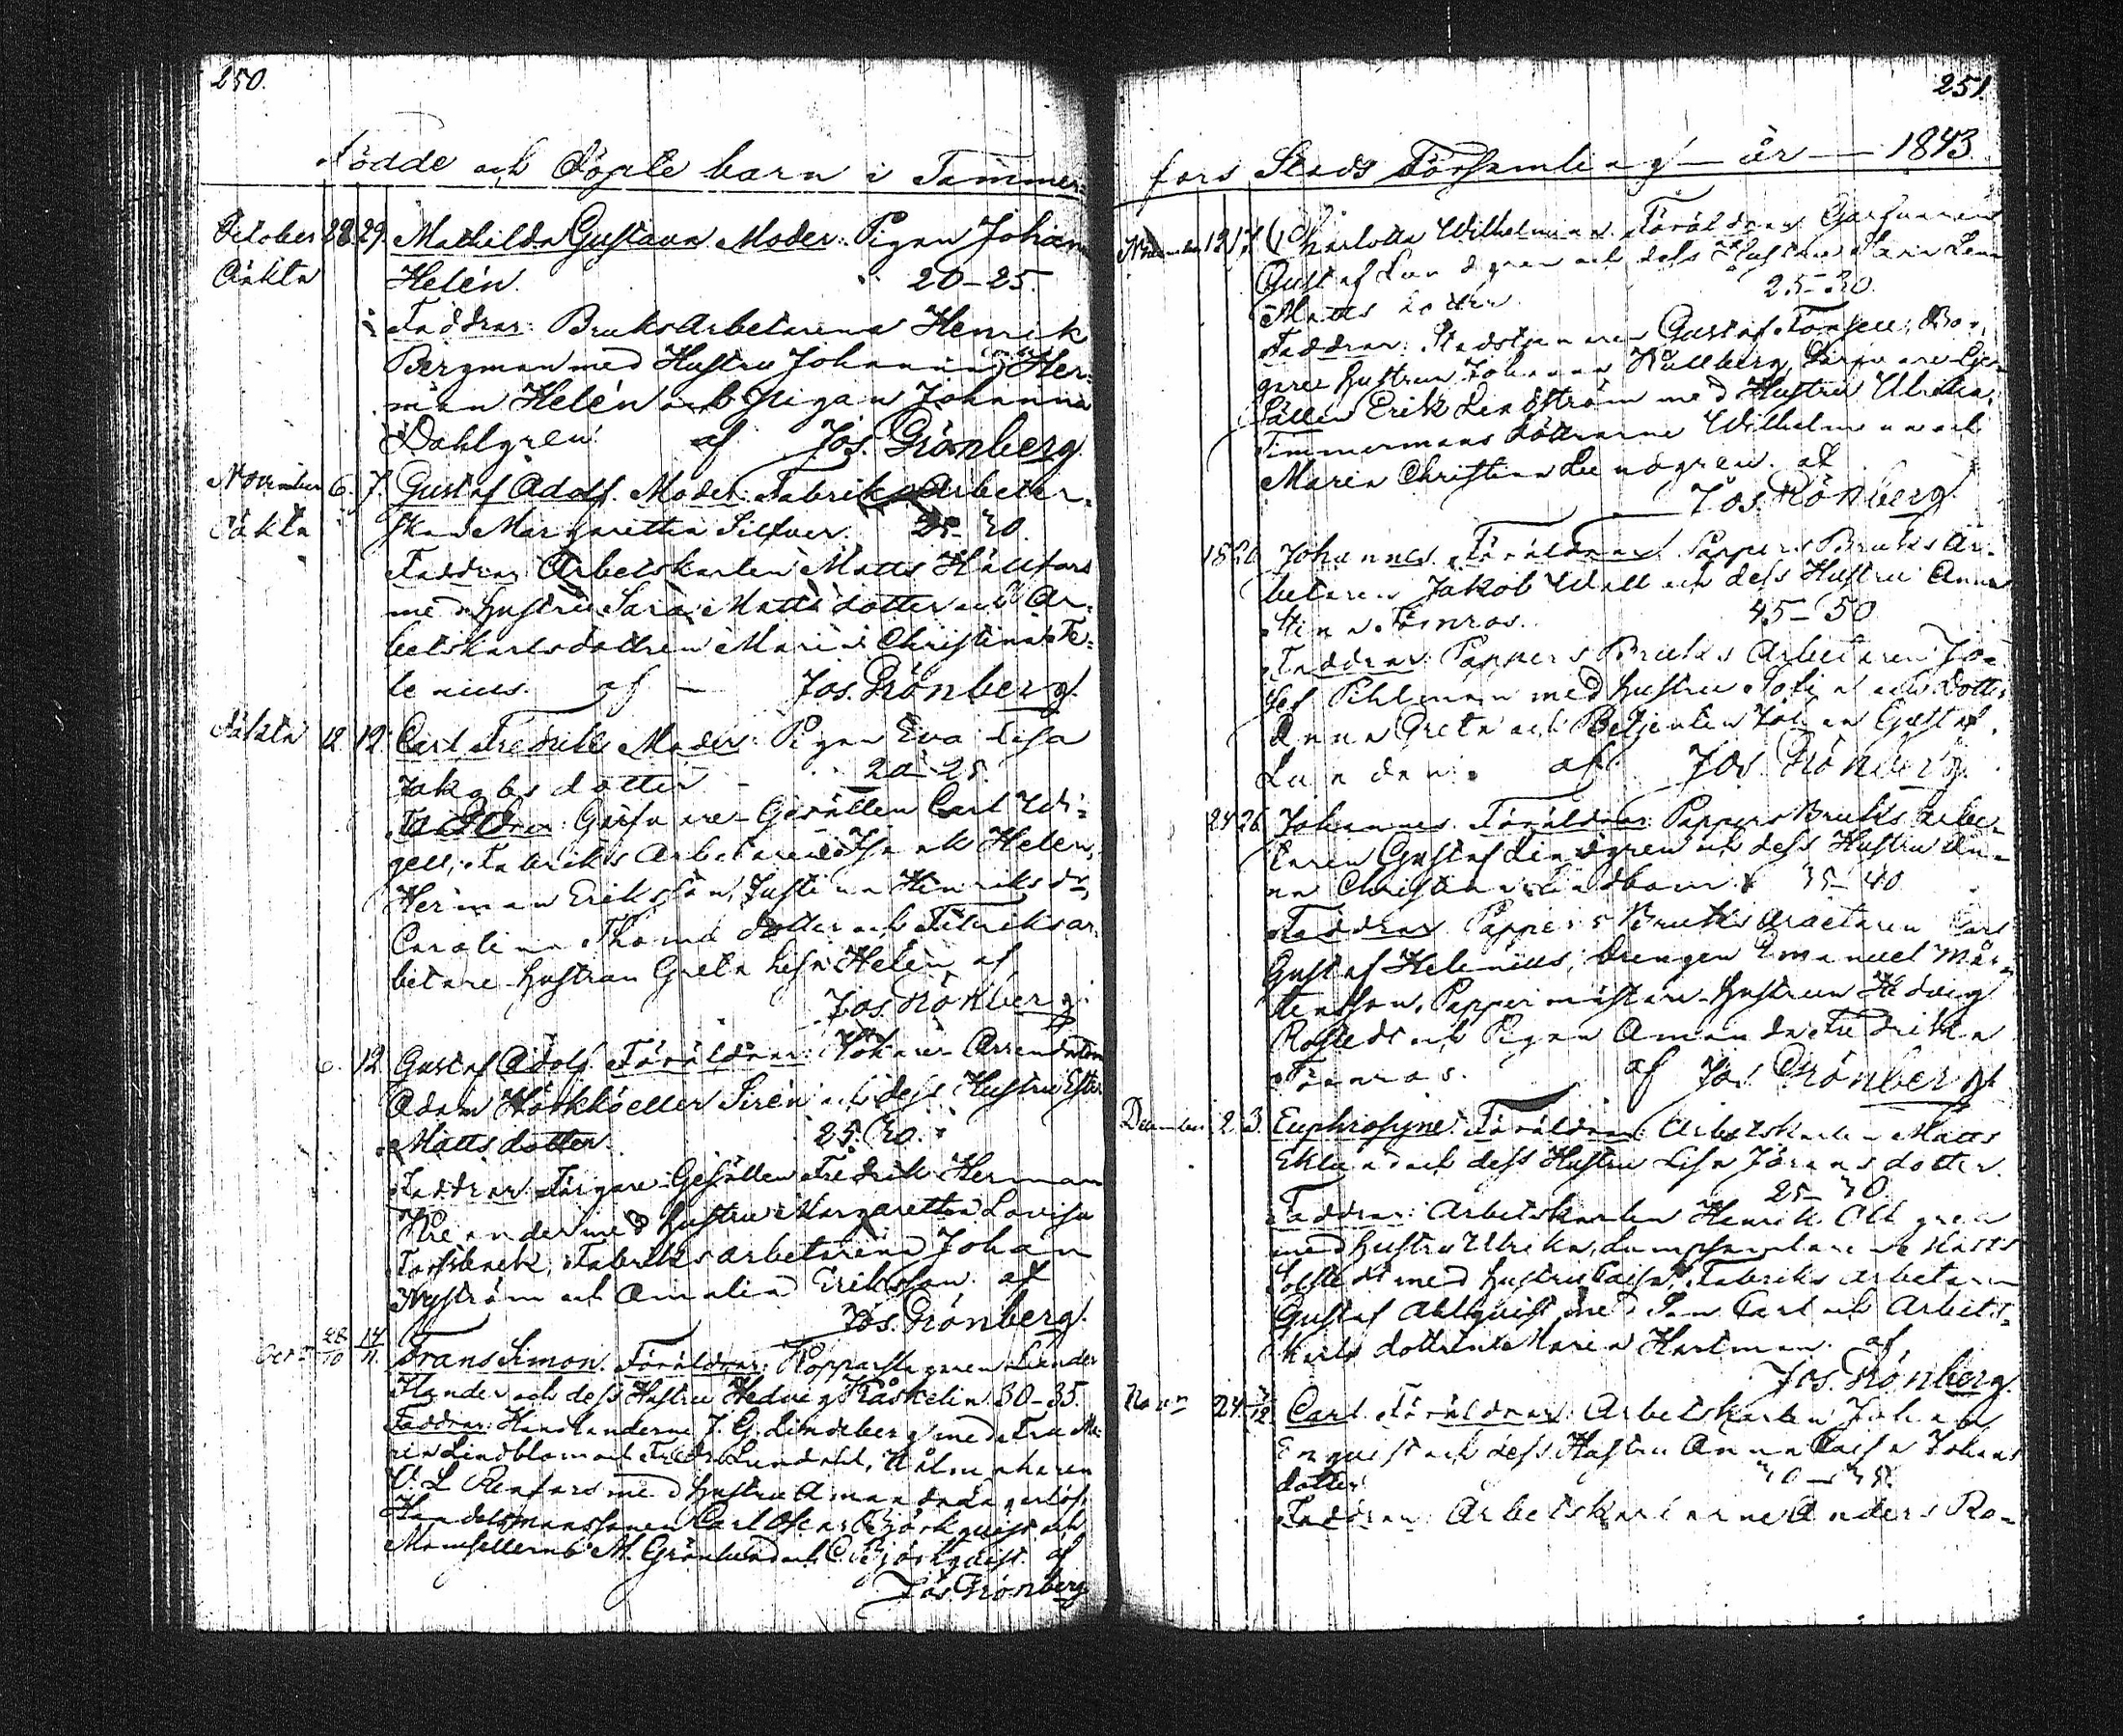 250.
Födde och Döpte barn i Tammer-
October 28. 29. Mathilda Gustava. Moder: Pigan Johan
Oäkta Helén. 20-25.
Faddrar: Bruks Arbetarena Henrik
Bergman med Hustru Johanna, Her-
man Helén och Pigan Johanna
Dahlgren. af Jos. Grönberg.
November 6. 7. Gustaf Adolf. Moder: Fabriks Arbeter-
Oäkta skan Margaretha Silfver. 25-30.
Faddrar: Arbetskarlen Matts Häufors
med Hustru Sara Mattsdotter och Ar-
betskarlsdottren Maria Christina Te-
lenius. af — Jos. Grönberg.
Oäkta 12 12. Carl Fredrik. Moder: Pigan Eva Lisa
Jakobsdotter 20-25.
Faddrar: Garfvare-Gesällen Carl Wi-
gell, Fabriks Arbetarene Isaak Helen,
Herman Eriksson, Justina Henriksdr,
Carolina Thomædotter och Fabriksar-
betare Hustrun Greta Lisa Helén, af
Jos. Grönberg.
6. 12 Gustaf Adolf. Föräldrar: Arrendatorn
Adam eller Sirén och dess Hustru Ester
Mattsdotter. 25.30.
Faddrar: Färgare-Gesällen Fredrik Herman
med Hustru Margaretha Lovisa
Forsback, Fabriksarbetarena Johan
Nyström och Amalia Eriksson. af
Jos. Grönberg.
Oct. 28/10 14/11. Frans Simon. Föräldrar: Kopparslagaren Leander
Ilander och dess Hustru Hedvig Kråskelin 30-35.
Faddrar: Handlanderne J. G. Lindeberg med Fru Ma-
ria Lindblom och Fredr. Lundahl,
med Hustru Amanda
Handelsmanssonen Carl Björkquist och
Mamsellerne M. Grönlund och C. Björkquist. af
Jos. Grönberg
251.
fors Stads Församling — år — 1843.
November 12 17. Charlotta Wilhelmina. Föräldrar: Garfvaren
Gustaf Lundgren och dess Hustru Maria Lena
Mattsdotter. 25-30.
Faddrar: Stadstjenaren Gustaf Forsell, Bor-
gare Hustrun Johanna Kullberg, Garfvare Ge-
sällen Erik Lindström med Hustru Ulrika,
Timmermans döttrarne Wilhelmina och
Maria Christina Lundgren. af
Jos. Grönberg.
18 20 Johannes. Föräldrar: Pappers Bruks Ar-
betaren Jakob Wall och dess Hustru Anna
Stina Törnroos. 45-50
Faddrar: Pappers Bruks Arbetaren Jo-
sef Pihlman med Hustru Sofia och Dotter
Anna Greta och Betjenten Johan Gustaf
Lunden. af Jos. Grönberg.
24 26. Johannes. Föräldrar: Pappers Bruks Arbe-
taren Gustaf Lindgren och dess Hustru An-
na Christina Lindbom 35-40
Faddrar: Pappers Bruks Arbetaren Carl
Gustaf Helenius, Drengen Emanuel Mår-
tensson, Pappermästare-Hustrun Hedvig
och Pigan Amanda Fredrika
Törnroos. af Jos. Grönberg.
December 2. 3. Euphrosyne. Föräldrar: Arbetskarlen Matts
Eklund och dess Hustru Lisa Jöransdotter.
25-30.
Faddrar: Arbetskarlen Henrik Ahlgren
med Hustru Ulrika, Lumpsamlaren Matts
med Hustru Caisa, Fabriks Arbetaren
Gustaf Ahlquist med Son Carl och Arbets-
karls dottren Maria Hartman. af
Jos. Grönberg.
Nov. 24 3/12 Carl. Föräldrar: Arbetskarlen Johan
Enquist och dess Hustru Anna Caisa Johans
dotter. 30-35.
Faddrar: Arbetskarlarne Anders Ro-